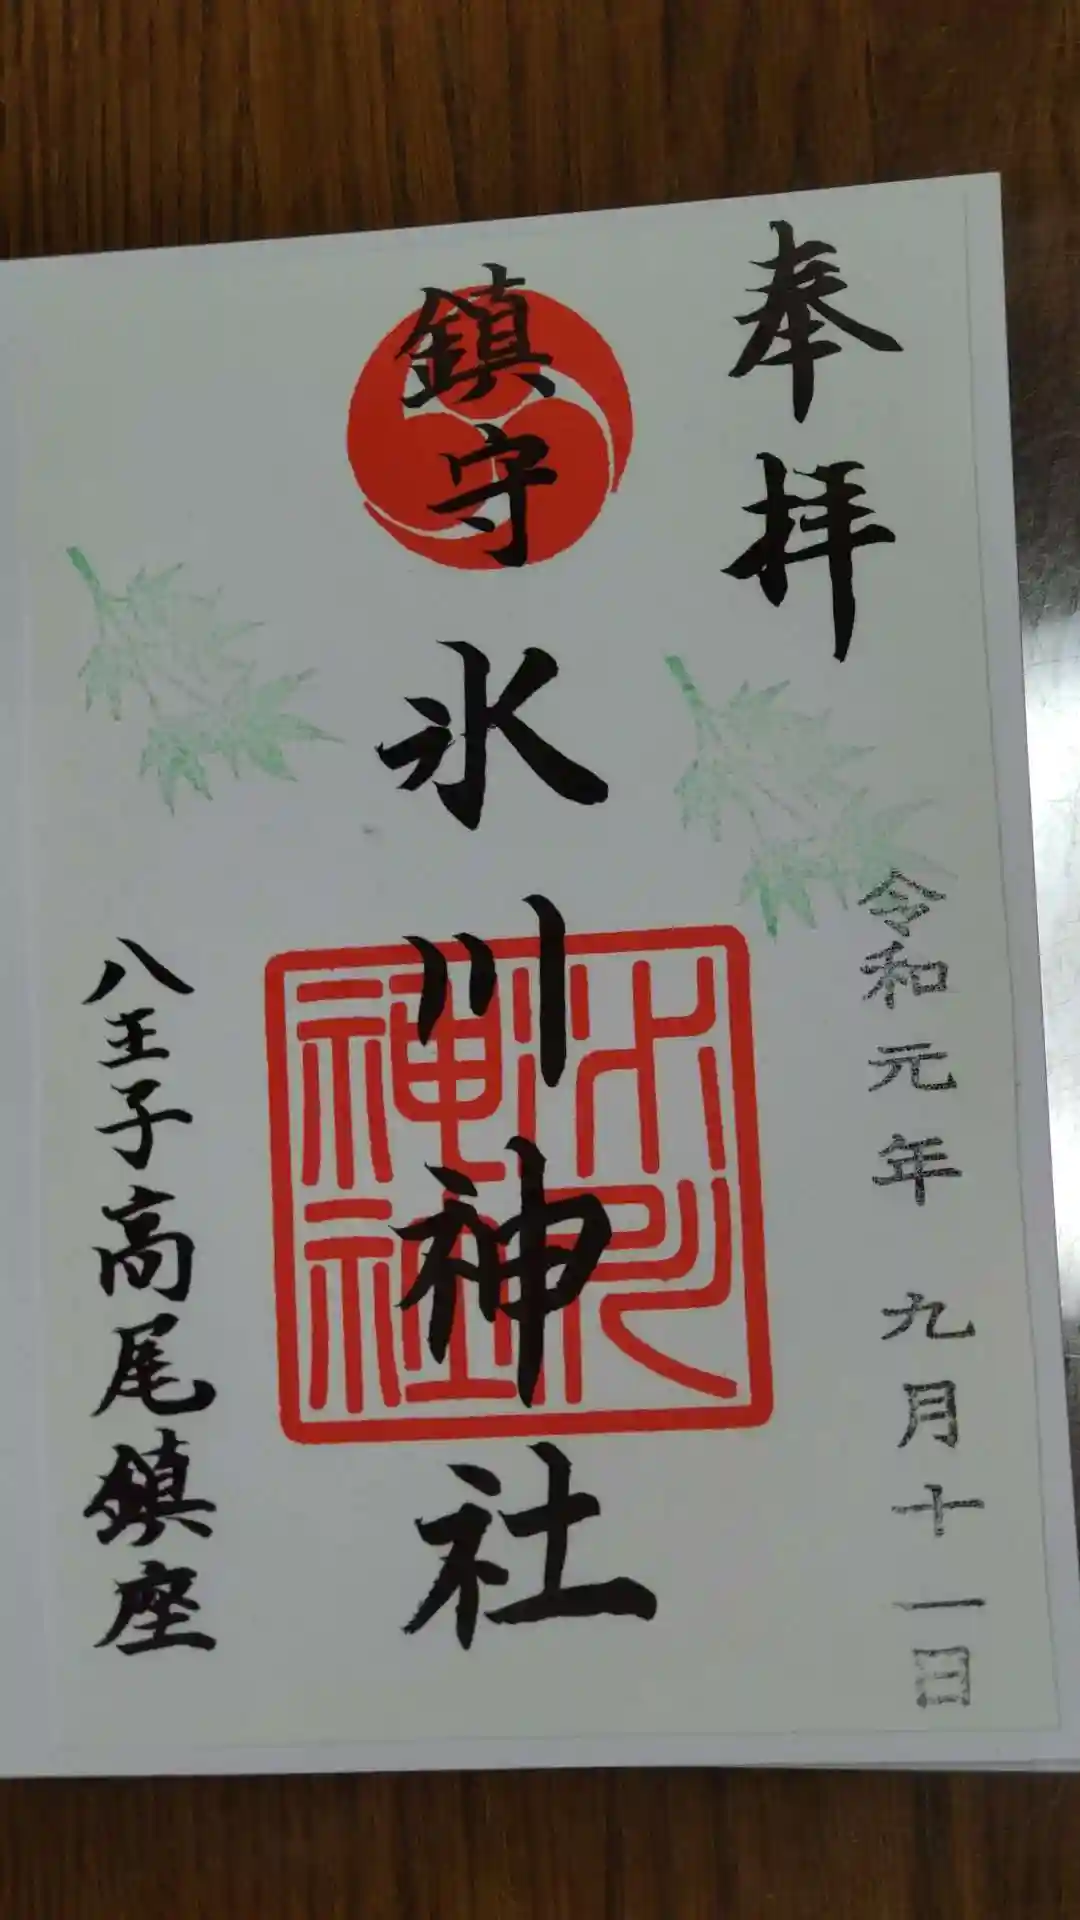 奉拝
令和元年 九月十一日
鎮守
氷川神社
氷川神社
八王子高尾鎮座